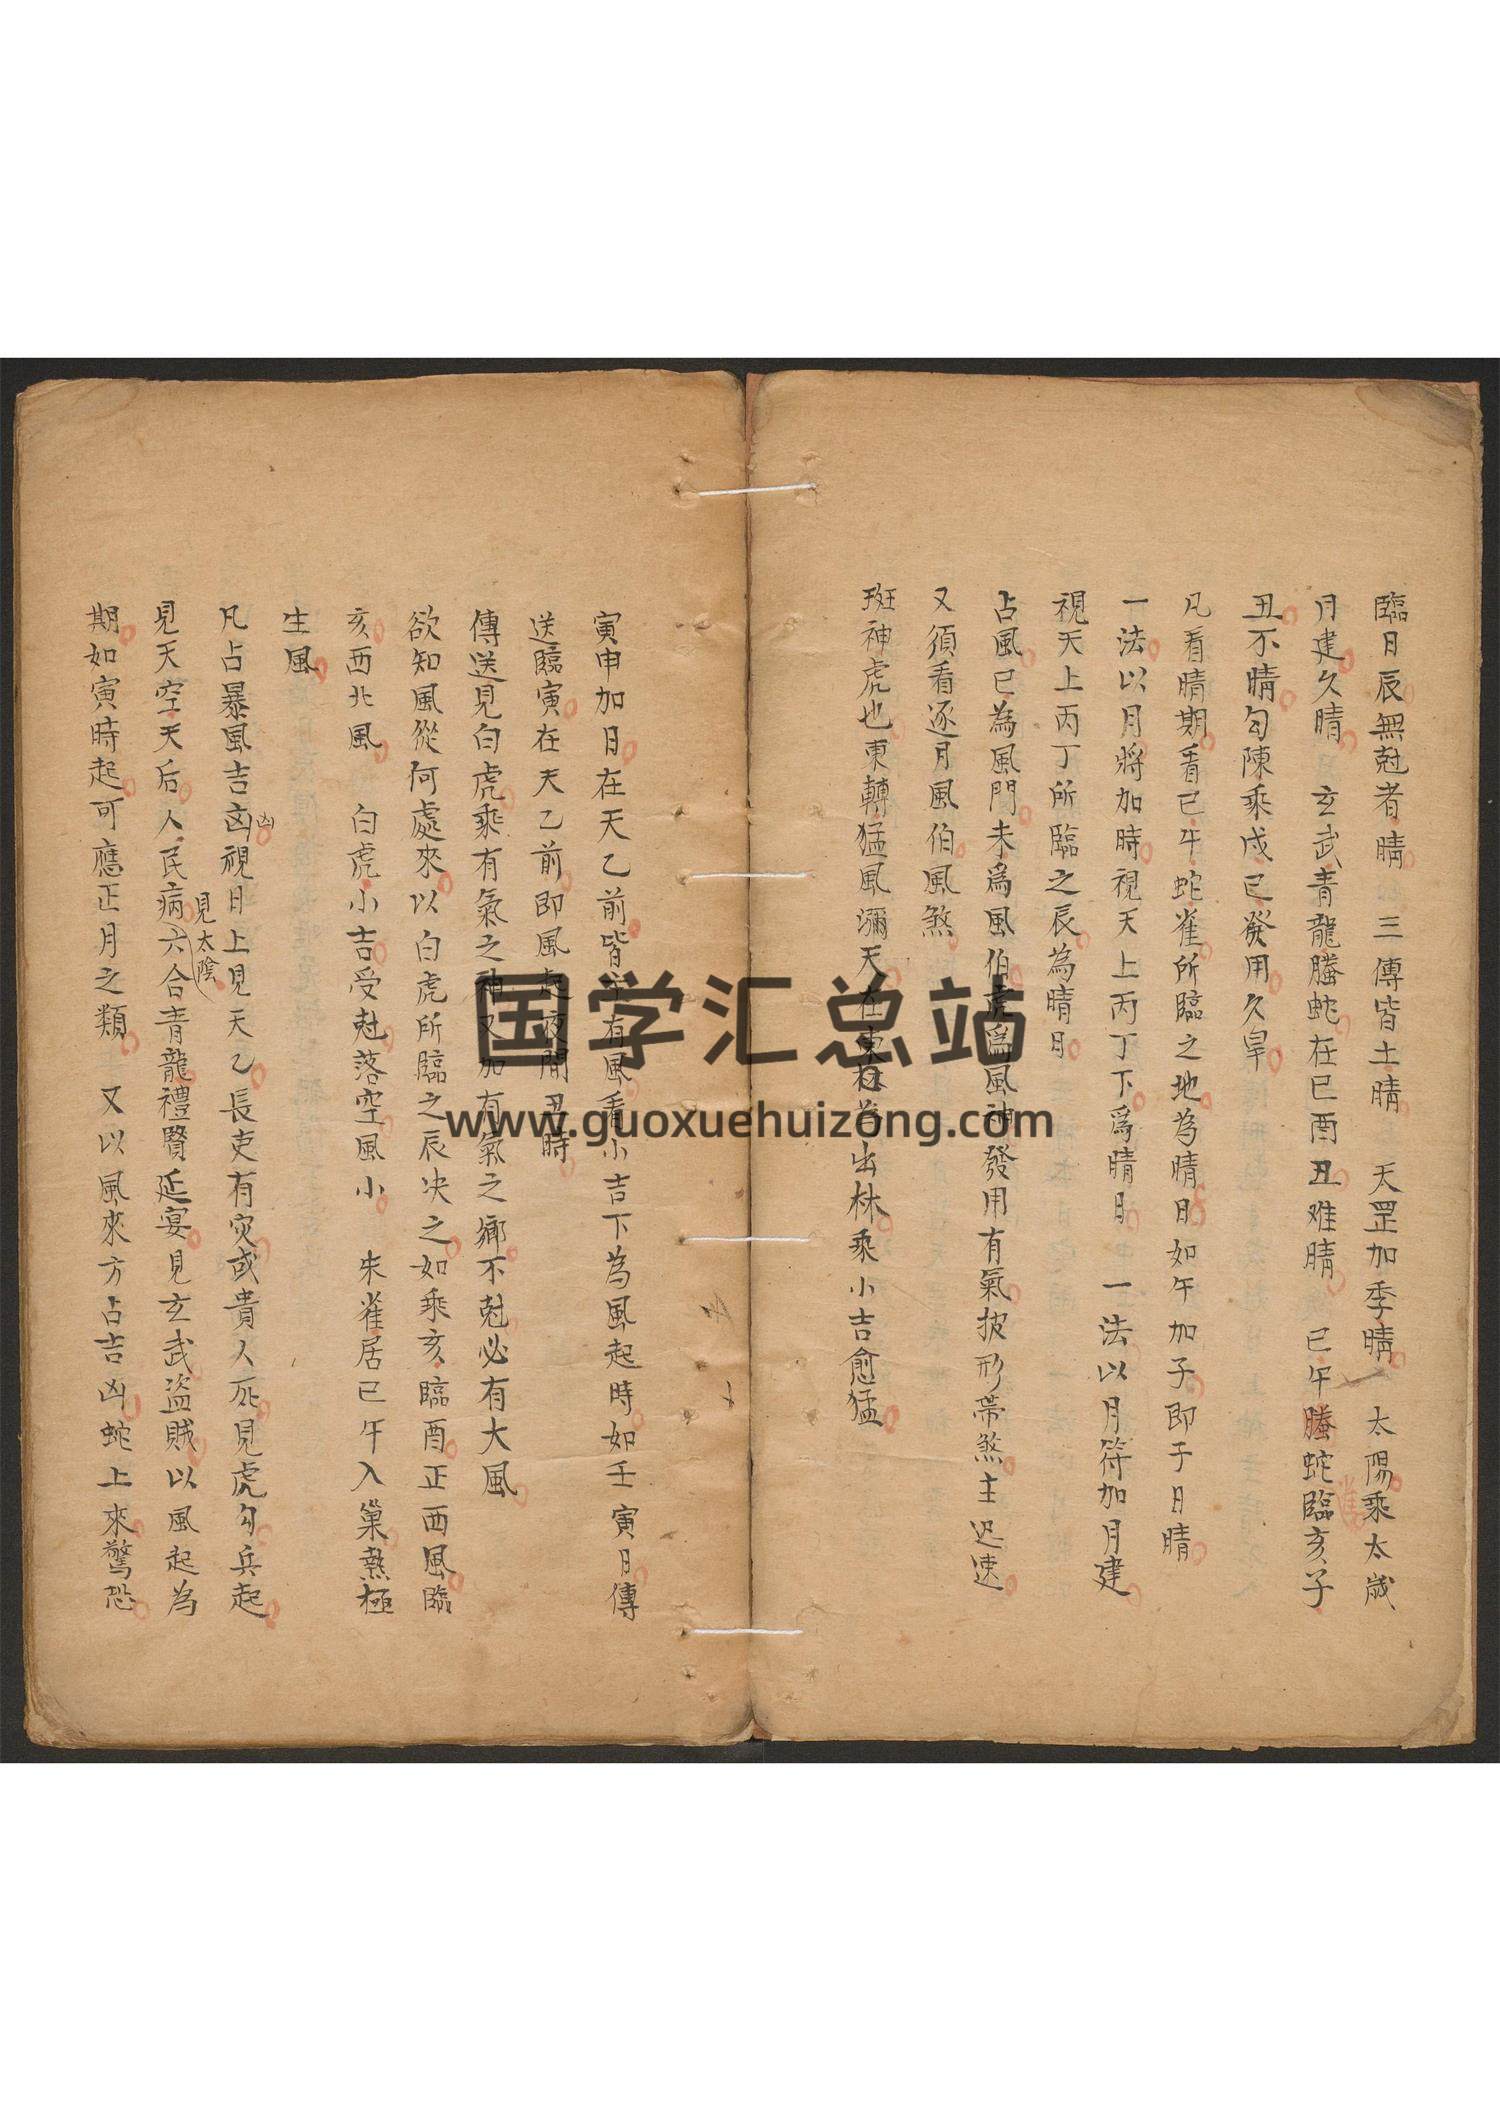 臨日辰無尅者晴 三傳皆土晴 天罡加季晴 太陽乘太歲
月建久晴 玄武青龍螣蛇在巳酉丑难晴 巳午螣蛇臨亥子
丑不晴勾陳乘戌巳發用久旱
凡看晴期看巳午蛇雀所臨之地為晴日如午加子即子日晴
一法以月將加時視天上丙丁下為晴日 一法以月符加月建
視天上丙丁所臨之辰為晴日
占風巳為風門未為風伯虎為風神發用有氣披形帶煞主迅速
又須看逐月風伯風煞
斑神虎也東轉猛風瀰天在東林為出林乘小吉愈猛
寅申加日在天乙前皆主有風看小吉下為風起時如壬寅日傳
送臨寅在天乙前即風起夜間丑時
傳送見白虎乘有氣之神又加有氣之鄉不尅必有大風
欲知風從何處來以白虎所臨之辰决之如乘亥臨酉正西風臨
亥西北風 白虎小吉受尅落空風小 朱雀居巳午入巢熱極
生風
凡占暴風吉凶視日上見天乙長吏有灾或貴人死見虎勾兵起
凶
見天空天后人民病六合青龍禮賢延宴見玄武盜賊以風起為
見太陰
期如寅時起可應正月之類 又以風來方占吉凶蛇上來驚恐
国学汇总站
www.guoxuehuizong.com